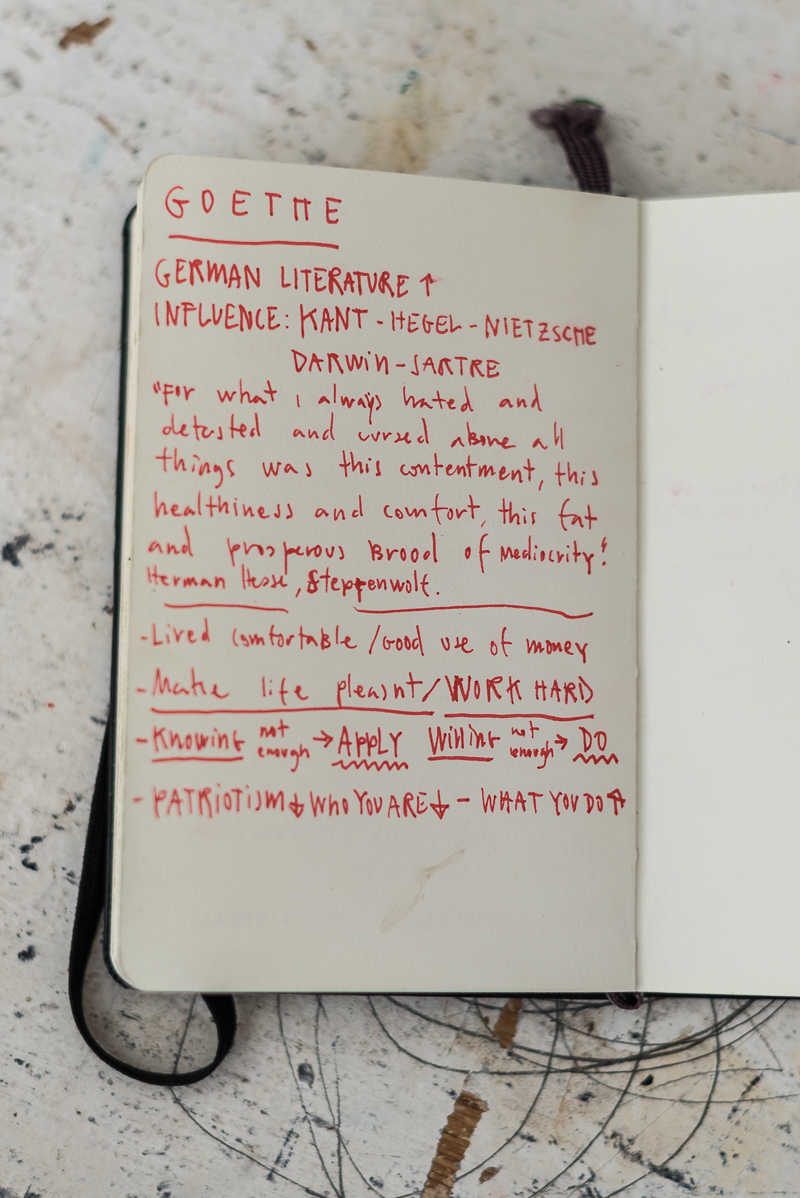 GOETHE
GERMAN LITERATURE ↑
INFLUENCE: KANT - HEGEL - NIETZSCHE
DARWIN - SARTRE
"For what I always hated and
detested and cursed above all
things was this contentment, this
healthiness and comfort, this fat
and prosperous Brood of mediocrity".
Herman Hesse, Steppenwolf.
- Lived comfortable / Good use of money
- Make life pleasnt / WORK HARD
- Knowing not enough → APPLY Willing not enough → DO
- PATRIOTISM ↓ WHO YOU ARE ↓ - WHAT YOU DO ↑